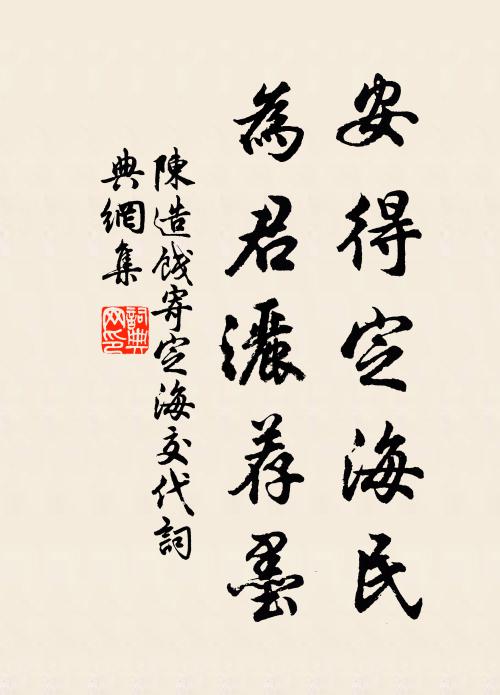 安得定海民
為君灑荐墨
陳造餞寄定海交代詞
典網集
詞典
网印